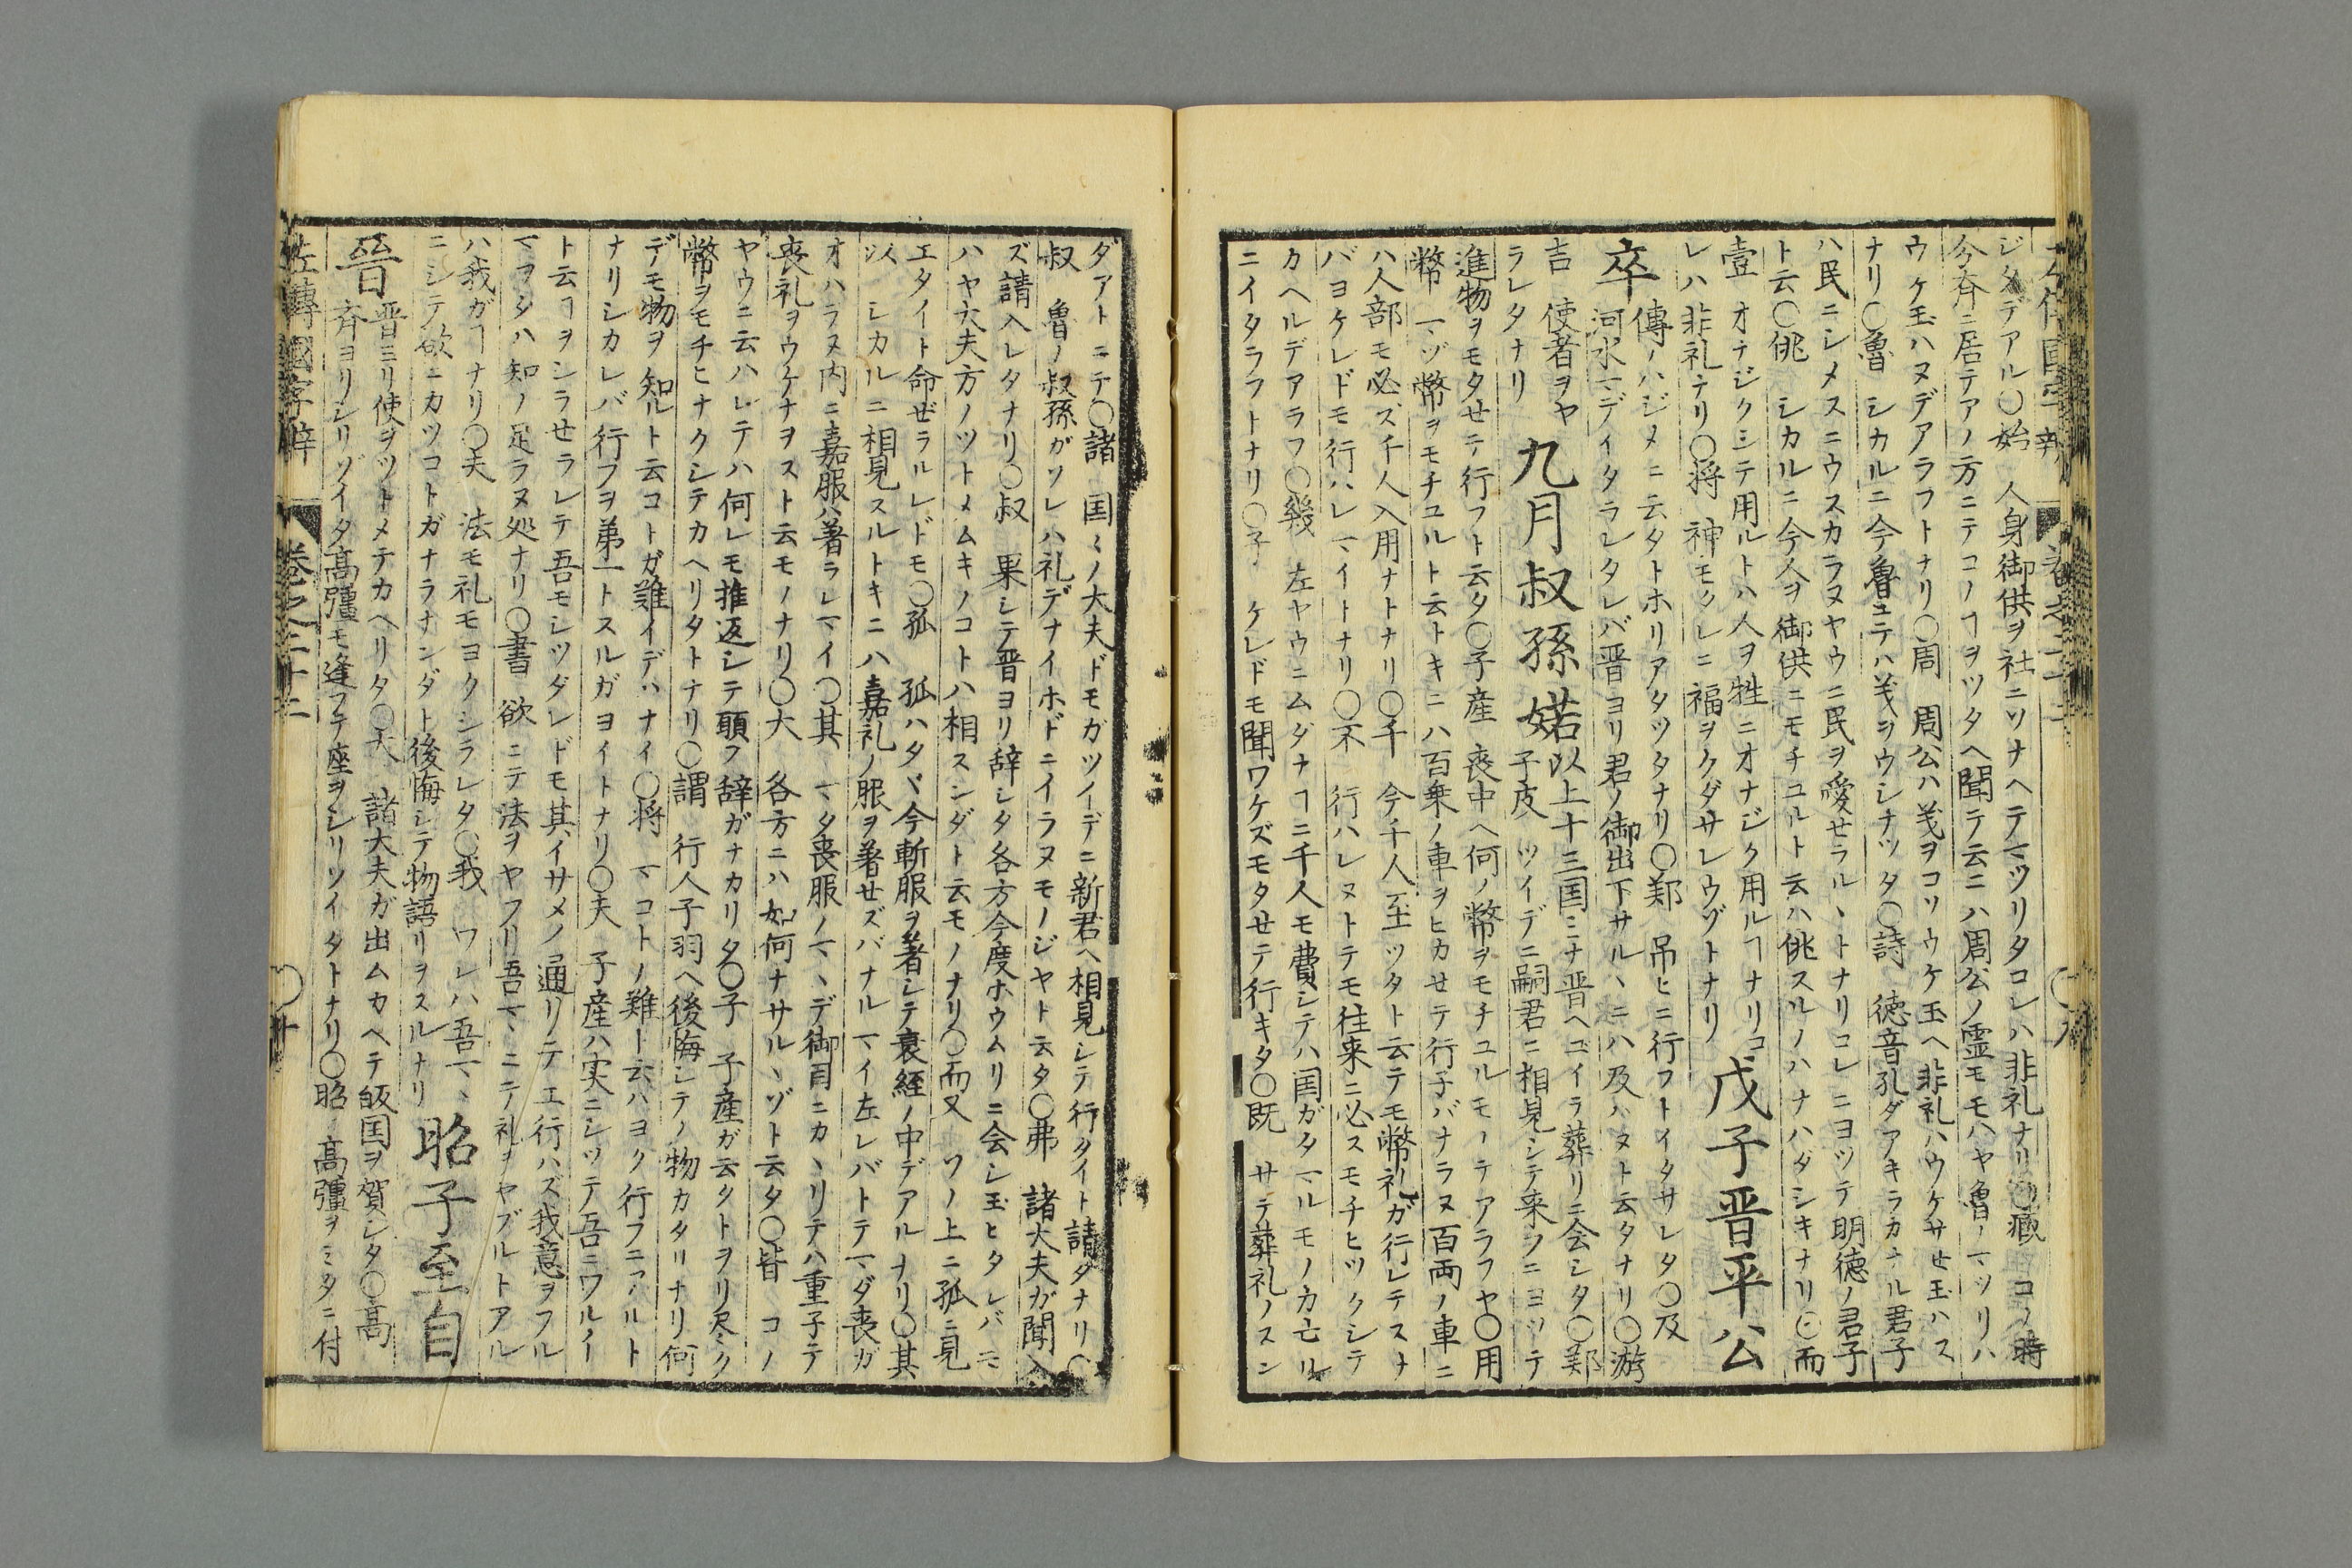 左傳國字辯 巻之二十二 ○九
ジタデアル○始 人身御供ヲ社ニソナヘテマツリタコレハ非礼ナリ○臧 コノ時
今斉ニ居テアノ方ニテコノヿヲツタヘ聞テ云ニハ周公ノ霊モモハヤ魯ノマツリハ
ウケ玉ハヌデアラフトナリ○周 周公ハ义ヲコソウケ玉ヘ非礼ハウケサせ玉ハス
ナリ○魯 シカルニ今魯ニテハ义ヲウシナツタ○詩 徳音孔ダアキラカナル君子
ハ民ニシメスニウスカラヌヤウニ民ヲ愛せラルヽトナリコレニヨツテ明徳ノ君子
ト云○佻 シカルニ今人ヲ御供ニモチユルト云ハ佻スルノハナハダシキナリ○而
壹 オナジクシテ用ルトハ人ヲ牲ニオナジク用ルヿナリコ
レハ非礼ナリ○将 神モクレニ福ヲクダサレウゾトナリ
戊子晋平公
卒
傳ノハジメニ云タトホリアタツタナリ○鄭 吊ヒニ行フトイタサレタ○及
河水マデイタラレタレバ晋ヨリ君ノ御出下サルヽニハ及ハヌト云タナリ○游
吉 使者ヲヤ
ラレタナリ
九月叔孫婼
以上十三国ミナ晋ヘユイラ葬リニ会シタ○鄭
子皮 ツイデニ嗣君ニ相見シテ来フニヨツテ
進物ヲモタせテ行フト云タ○子産 喪中ヘ何ノ幣ヲモチユルモノテアラフヤ○用
幣 マヅ幣ヲモチユルト云トキニハ百乗ノ車ヲヒカせテ行子バナラヌ百両ノ車ニ
ハ人部モ必ズ千人入用ナトナリ○千 今千人至ツタト云テモ幣礼ガ行レテスナ
バヨケレドモ行ハレマイトナリ○不 行ハレヌトテモ往来ニ必スモチヒツクシテ
カヘルデアラフ○幾 左ヤウニムダナヿニ千人モ費シテハ国ガタマルモノカ亡ル
ニイタラフトナリ○子 ケレドモ聞ワケズモタせテ行キタ○既 サテ葬礼ノスン
ダアトニテ○諸 国々ノ大夫ドモガツイデニ新君ヘ相見シテ行タイト請タナリ○
叔 魯ノ叔孫ガソレハ礼デナイホドニイラヌモノジヤト云タ○弗 諸大夫ガ聞入
ズ請入レタナリ○叔 果シテ晋ヨリ辞シタ各方今度ホウムリニ会シ玉ヒタレバモ
ハヤ大夫方ノツトメムキノコトハ相スンダト云モノナリ○而又 ソノ上ニ孤ニ見
エタイト命ぜラルレドモ○孤 孤ハタヾ今斬服ヲ著シテ衰絰ノ中デアルナリ○其
以 シカルニ相見スルトキニハ嘉礼ノ服ヲ著せズバナルマイ左レバトテマダ喪ガ
オハラヌ内ニ嘉服ハ著ラレマイ○其 マタ喪服ノマヽデ御目ニカヽリテハ重子テ
喪礼ヲウケナヲスト云モノナリ○大 各方ニハ如何ナサルヽゾト云タ○皆 コノ
ヤウニ云ハレテハ何レモ推返シテ願フ辞ガナカリタ○子 子産ガ云タトヲリ尽ミク
幣ヲモチヒナクシテカヘリタトナリ○謂 行人子羽ヘ後悔シテノ物カタリナリ何
デモ物ヲ知ルト云コトガ難イデハナイ○将 マコトノ難ト云ハヨク行フニアルト
ナリシカレバ行フヲ第一トスルガヨイトナリ○夫 子産ハ実ニシツテ吾ニワルイ
ト云ヿヲシラせラレテ吾モシツダレドモ其イサメノ通リテエ行ハズ我意ヲフル
マヲタハ知ノ足ラヌ処ナリ○書 欲ニテ法ヲヤフリ吾マヽニテ礼ヲヤブルトアル
ハ我ガヿナリ○夫 法モ礼モヨクシラレタ○我 ワレハ吾マヽ
ニシテ欲ニカツコトガナラナンダト後悔シテ物語リヲスルナリ
昭子至自
晉
晋ヨリ使ヲツトメテカヘリタ○大 諸大夫ガ出ムカヘテ皈国ヲ賀シタ○高
斉ヨリシリゾイタ高彊モ逢フテ座ヲシリソイタトナリ○昭 高彊ヲミタニ付
左傳國字辯 巻之二十二 ○十